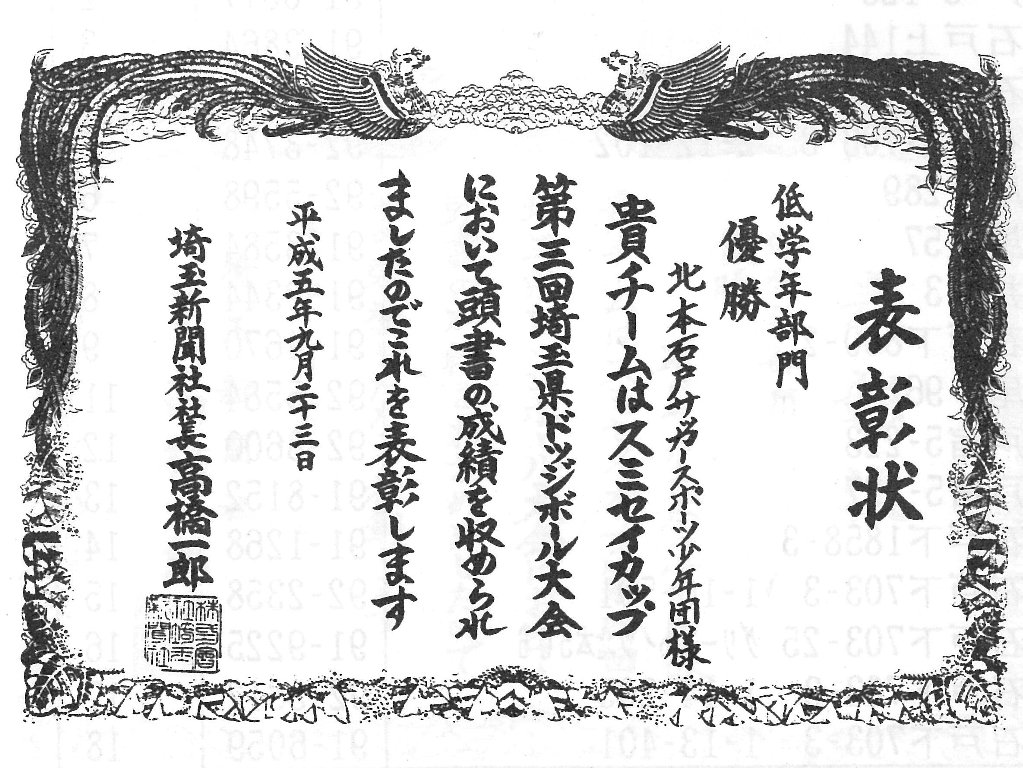 表彰状
低学年部門
優勝
北本石戸サッカースポーツ少年団様
貴チームはスミセイカップ
第三回埼玉県ドッジボール大会
において頭書の成績を収められ
ましたのでこれを表彰します
平成五年九月二十三日
埼玉新聞社社長高橋一郎